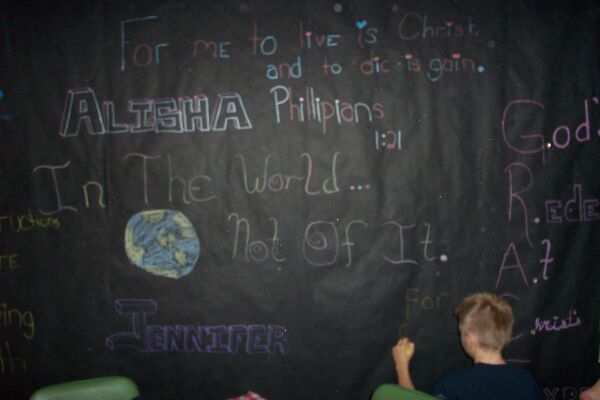 For me to live is Christ,
and to die is gain.
ALISHA Phillipians
1:21
In The World...
Not Of It.
JENNIFER
For
God's
Rede
At
Christ's